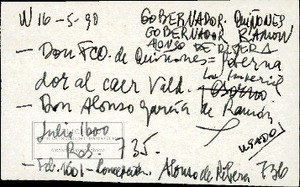 W 16-5-90 GOBERNADOR QUIÑONES
GOBERNADOR RAMON
ALONSO DE RIBERA
- Don Fco. de Quiñones = Goberna
dor al caer Vald. La Imperial
- Don Alonso García de Ramón
Julio 1600
Ros. 735.
USADO
- Feb. 1601 - Concepción. Alonso de Ribera 736